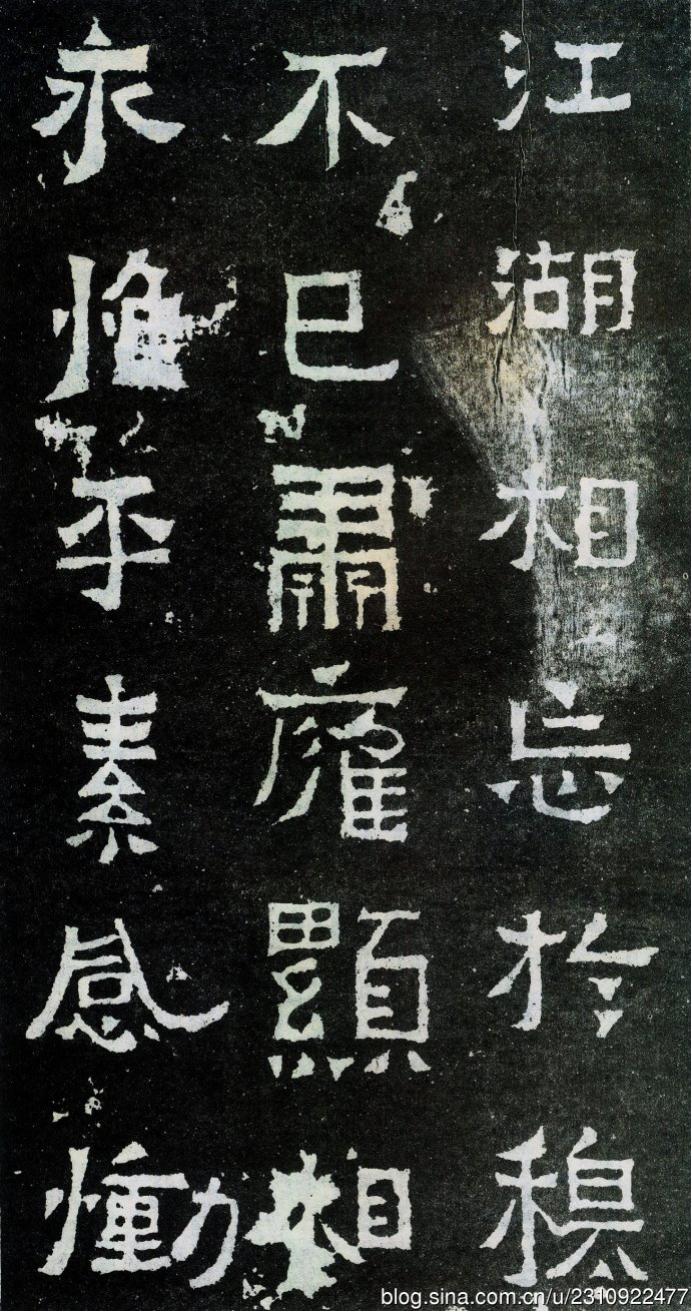 江湖相忘於穆
不已肅雍顯相
永惟平素感慟
blog.sina.com.cn/u/2310922477